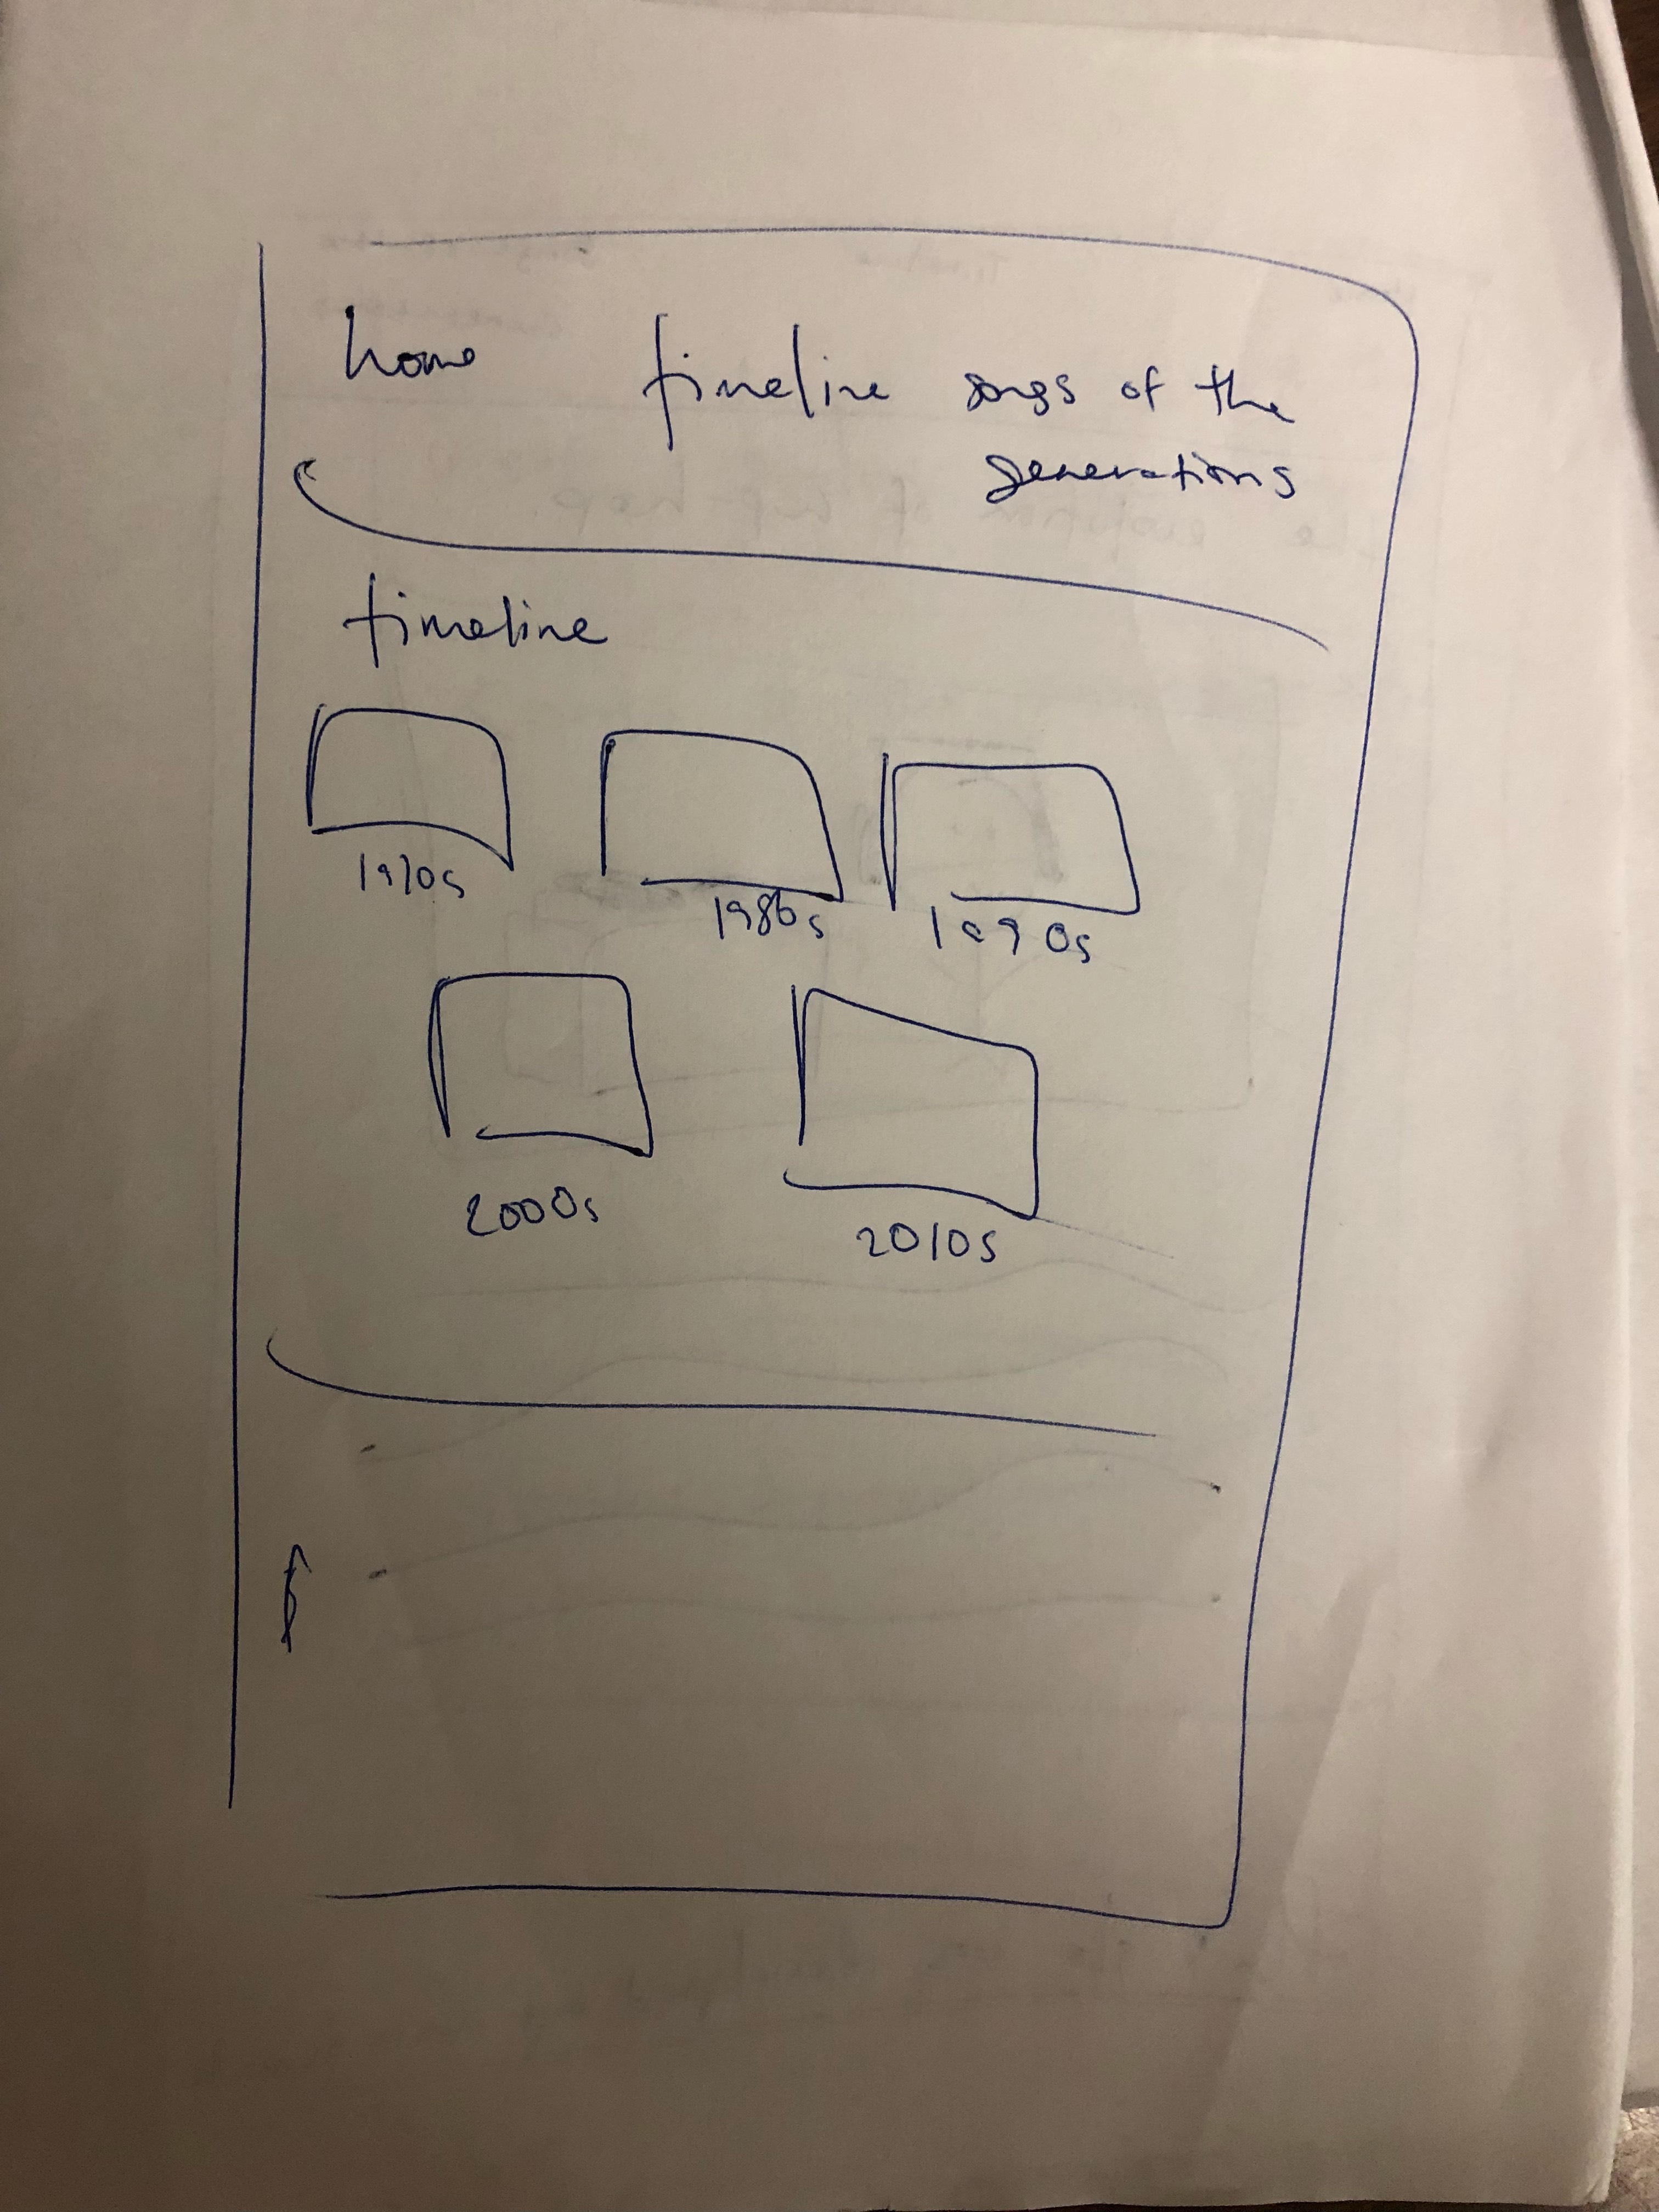 home timeline songs of the
generations
timeline
1970s 1980s 1990s
2000s 2010s